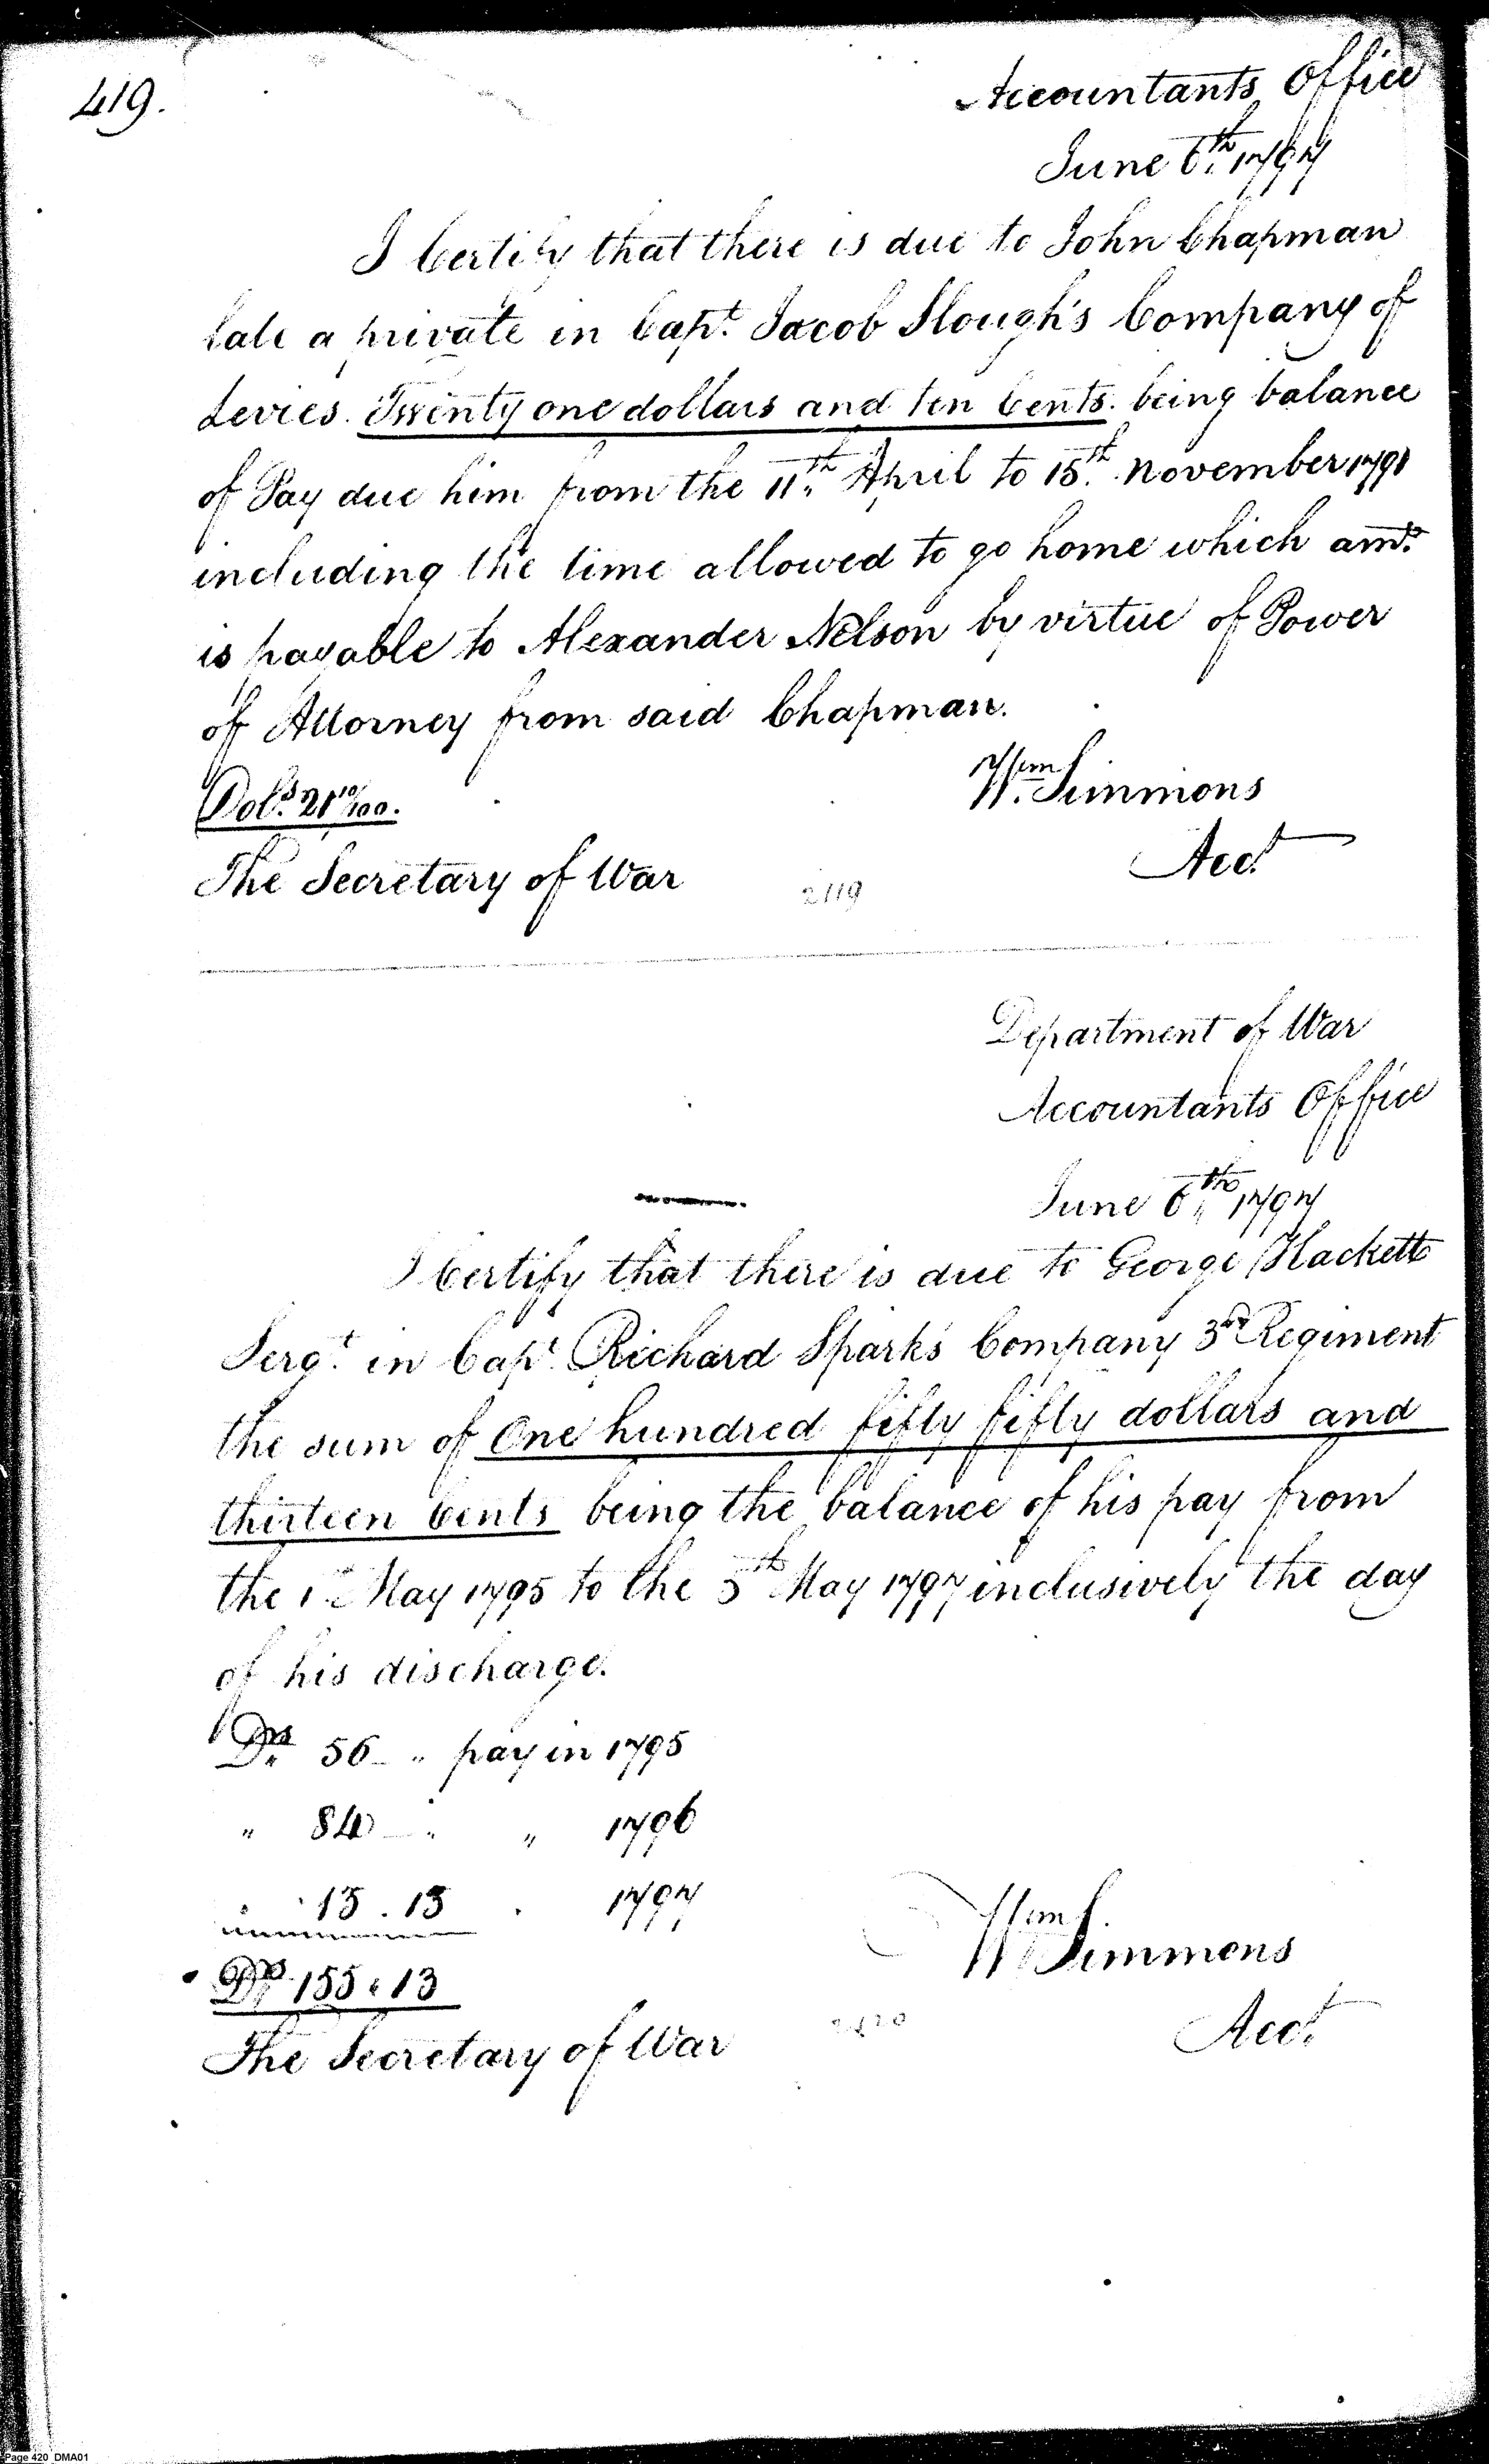 419.
Accountants Office
June 6th 1797
I Certify that there is due to John Chapman
late a private in Capt. Jacob Slough's Company of
Levies. Twenty one dollars and ten Cents. being balance
of Pay due him from the 11th April to 15th November 1791
including the time allowed to go home which amt.
is payable to Alexander Nelson by virtue of Power
of Attorney from said Chapman.
Dols. 21 10/100.
Wm. Simmons
Acct.
The Secretary of War
2119
Department of War
Accountants Office
June 6th 1797
I Certify that there is due to George Hackett
Sergt. in Capt. Richard Sparks Company 3rd Regiment
the sum of One hundred fifty fifty dollars and
thirteen Cents being the balance of his pay from
the 1st May 1795 to the 5th May 1797 inclusively the day
of his discharge.
Drs 56 - " pay in 1795
" 84 - " " 1796
" 15.13 " 1797
Drs 155.13
Wm Simmons
Acct.
The Secretary of War
2120
Page 420 DMA01